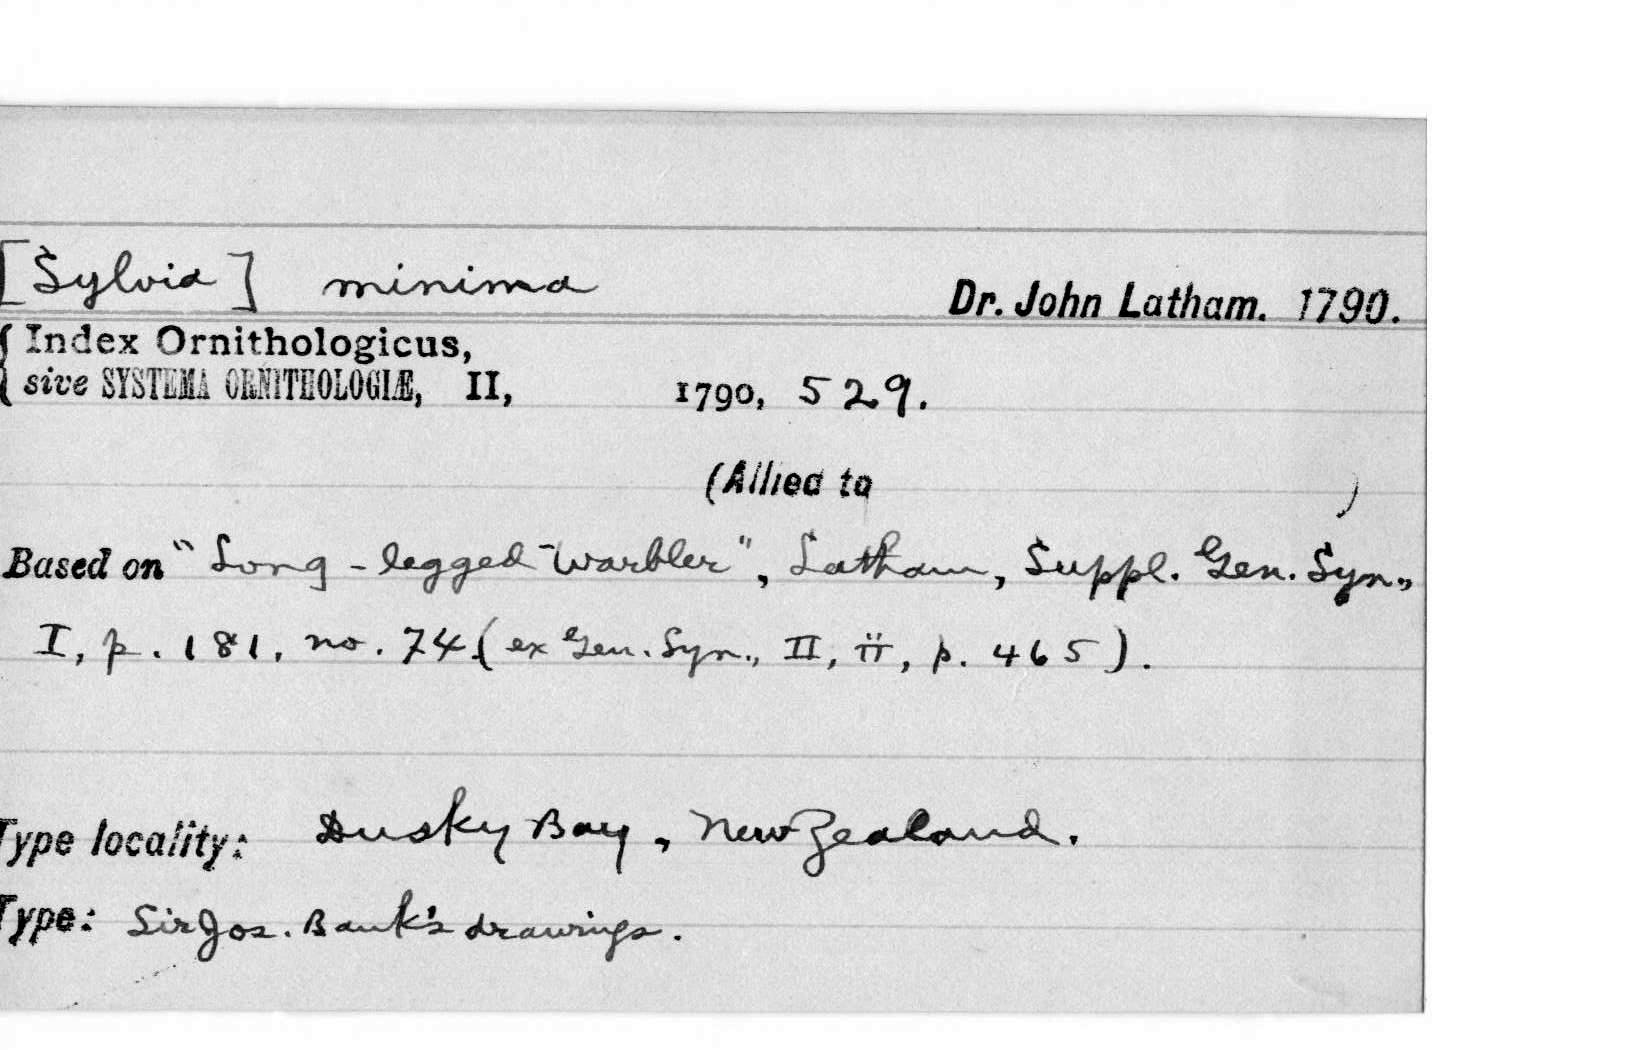 [Sylvia] minima Dr. John Latham. 1790.
Index Ornithologicus,
sive SYSTEMA ORNITHOLOGIÆ, II, 1790, 529.
(Allied to )
Based on "Long-legged-Warbler", Latham, Suppl. Gen. Syn.,
I, p. 181, no. 74 (ex Gen. Syn., II, ii, p. 465).
Type locality: Dusky Bay, New Zealand.
Type: Sir Jos. Bank's drawings.